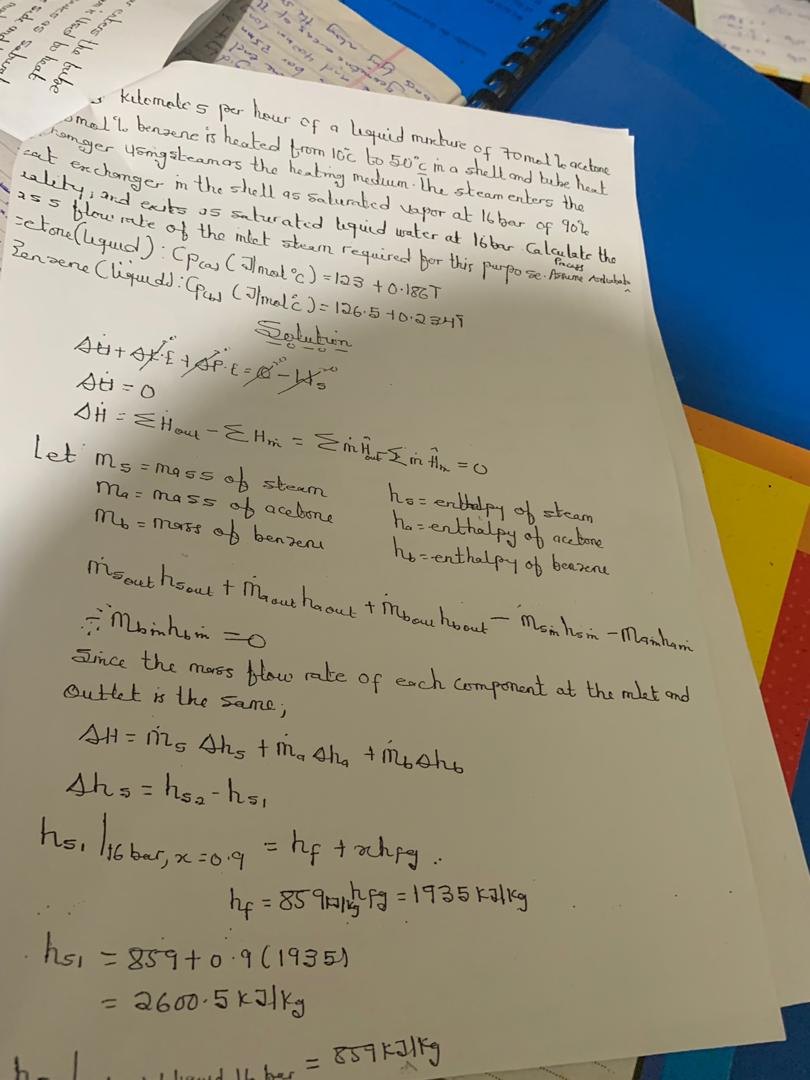 kilomoles per hour of a liquid mixture of 70mol % acetone
mol % benzene is heated from 10°c to 50°c in a shell and tube heat
using steam as the heating medium. The steam enters the
exchanger in the shell as saturated vapor at 16 bar of 90%
and exits as saturated liquid water at 16bar. Calculate the
flow rate of the inlet steam required for this purpose. Assume Adiabatic Process
(liquid): Cp(a) (J/mol°c) = 123 + 0.186T
Benzene (liquid): Cp(b) (J/mol°c) = 126.5 + 0.234T
Solution
ΔḢ + ΔK.E + ΔP.E = Q - Ws
ΔḢ = 0
ΔḢ = ΣḢout - ΣHin = ΣṁĤout - Σṁ Ĥin = 0
Let ms = mass of steam
ma = mass of acetone
mb = mass of benzene
hs = enthalpy of steam
ha = enthalpy of acetone
hb = enthalpy of benzene
ṁsout hsout + ṁaout haout + ṁbout hbout - ṁsin hsin - main hain
- ṁbin hbin = 0
Since the mass flow rate of each component at the inlet and
outlet is the same;
ΔH = ṁs Δhs + ṁa Δha + ṁb Δhb
Δhs = hs2 - hs1
hs1 | 16 bar, x = 0.9 = hf + xhfg.
hf = 859kJ/kg hfg = 1935 kJ/kg
hs1 = 859 + 0.9 (1935)
= 2600.5 kJ/kg
liquid 16 bar = 859 kJ/kg